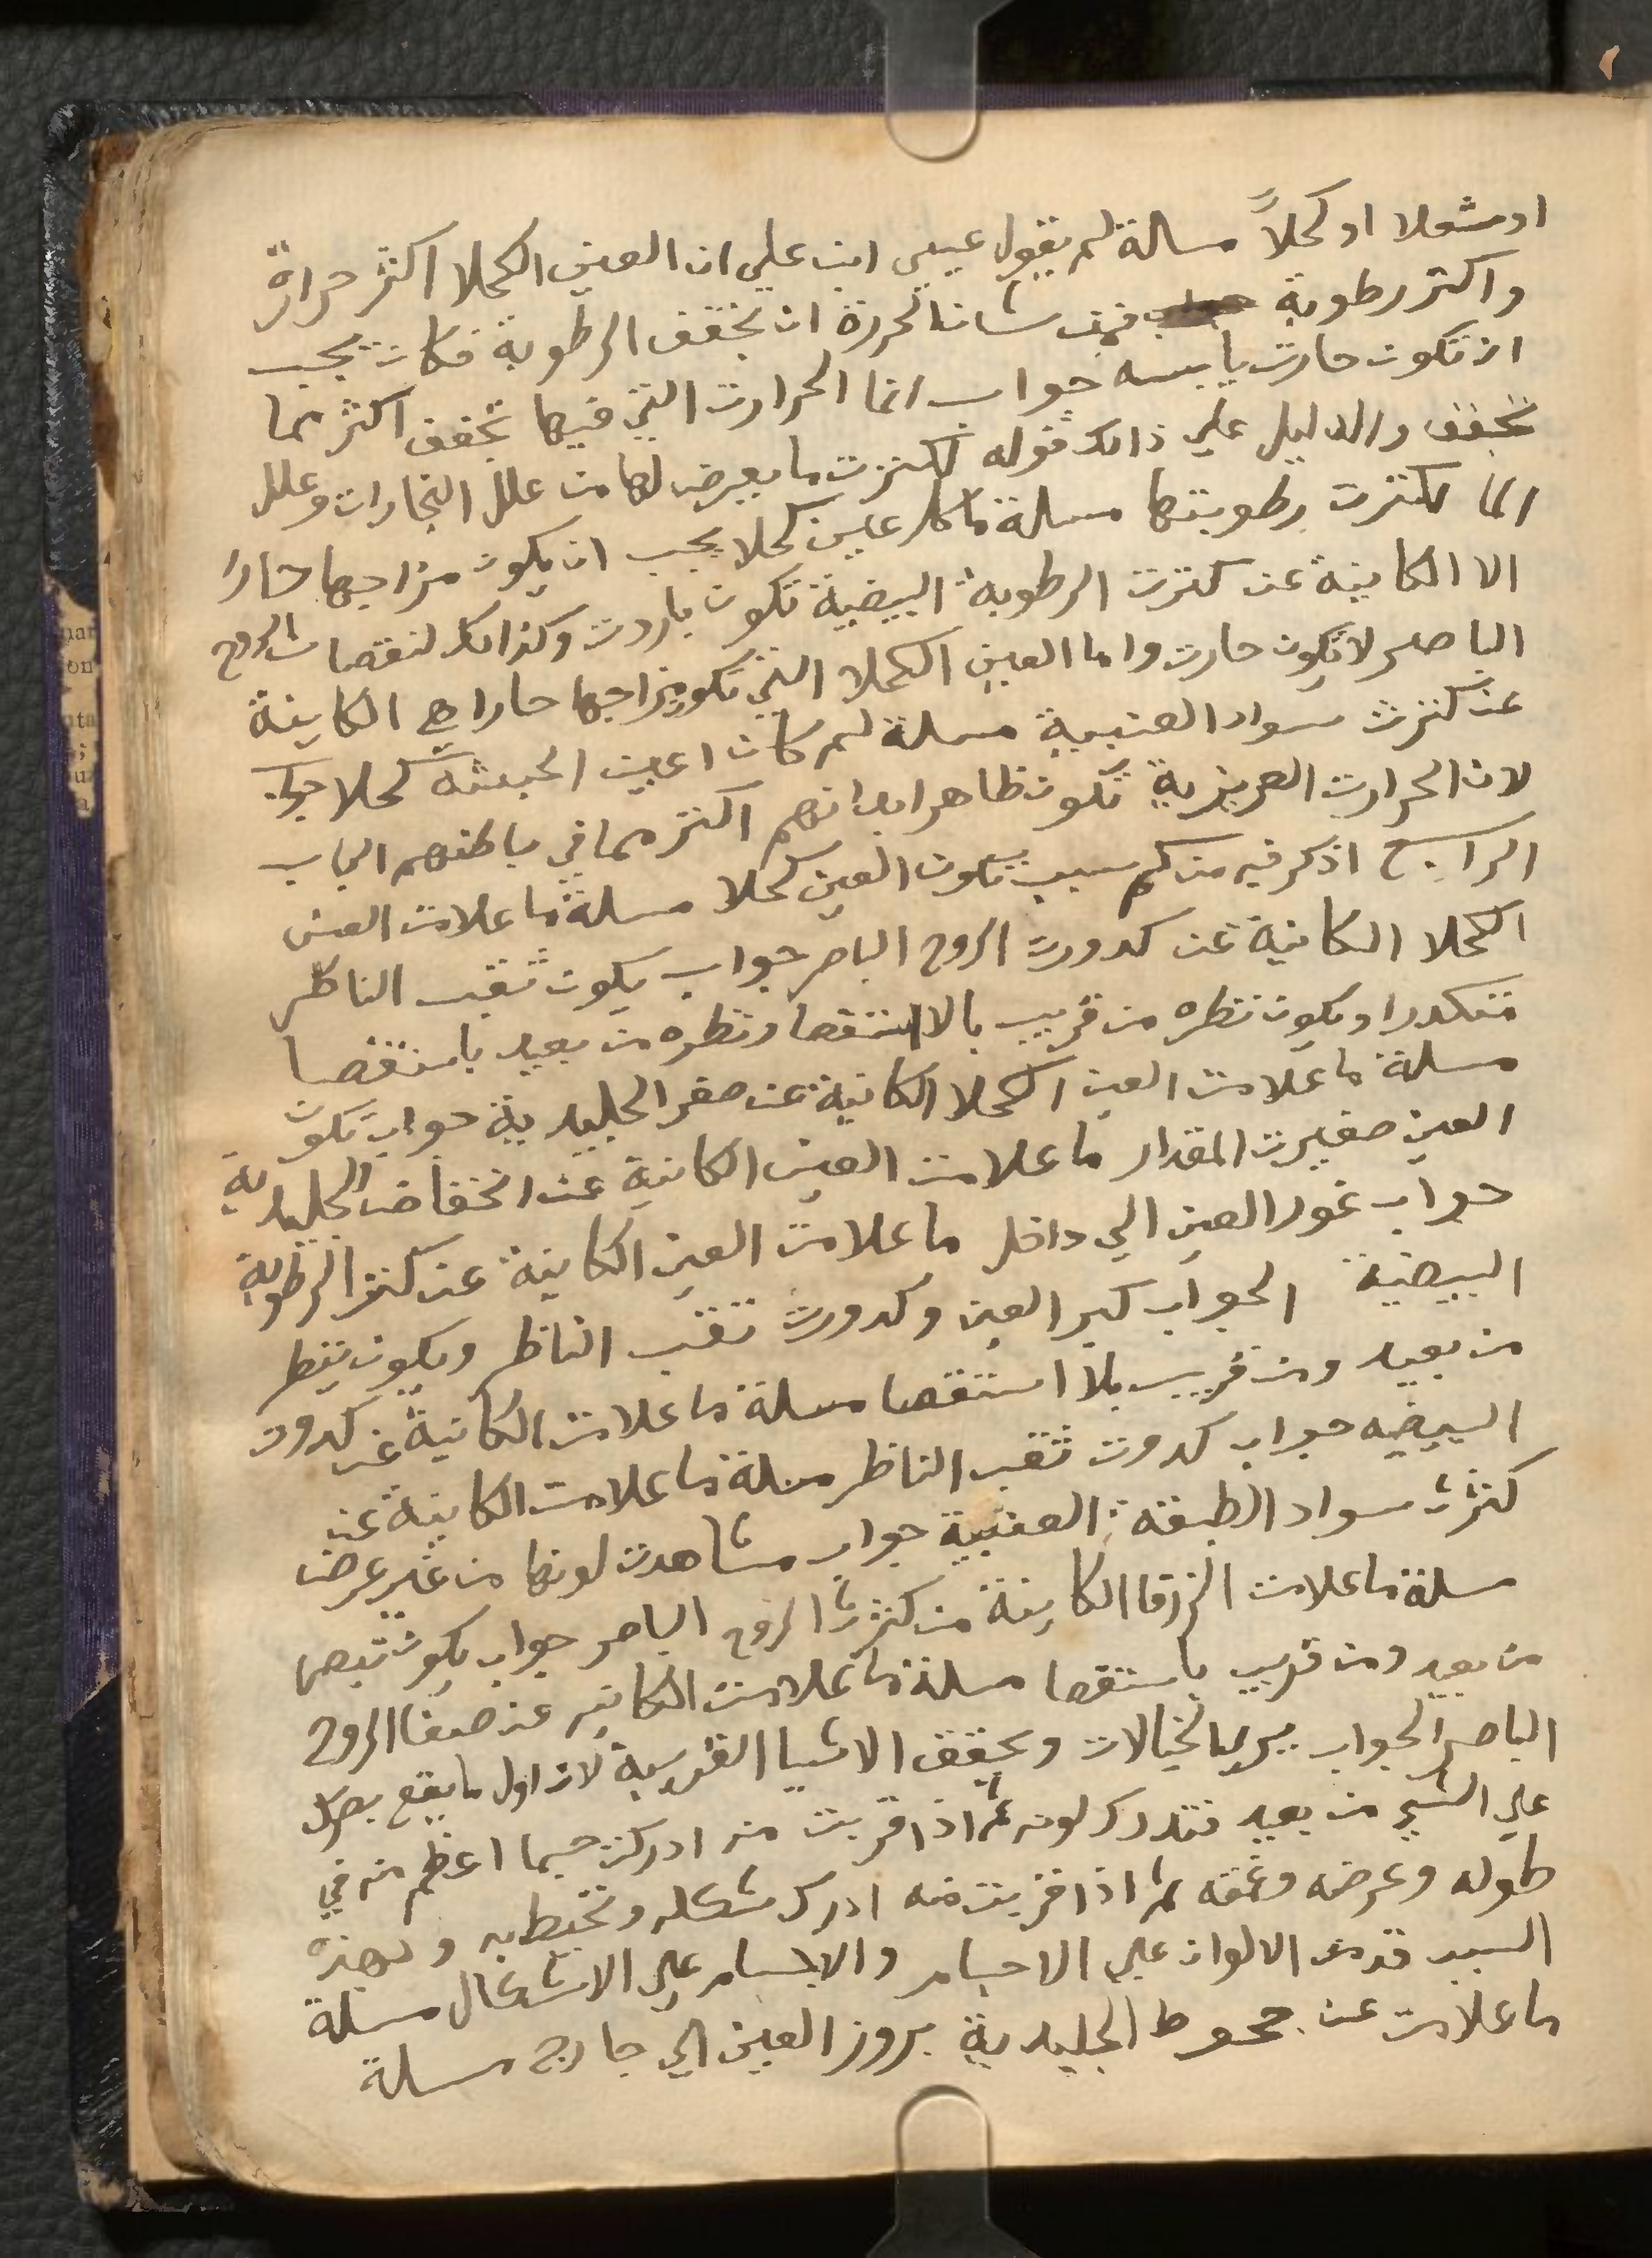 او شعلا او كحلاً مسالة لم يقول عيسي ابن علي ان العين الكحلا اكثر حرارة
واكثر رطوبة فمن شان الحررة ان تجفف الرطوبة فكان يجب
ان تكون حارت يابسه جواب انما الحرارت التي فيها تجفف اكثر مما
تجفف والدليل علي ذالك قوله لكثرت ما يعرض لها من علل البخارات وعلل
الما لكثرت رطوبتها مسلة ما كل عاين كحلا يجب ان يكون مزاجها حارا
الا الكاينة عن كثرت الرطوبة البيضية تكون باردت وكذالك لنقصان الروح
الباصر لا تكون حارت واما العين الكحلا التي تكون مزاجها حارا هي الكاينة
عن كثرت سواد العنبية مسلة لم كان اعين الحبشة كحلا جواب
لان الحرارت الغريزية تكون ظاهر ابدانهم اكثر مما في باطنهم الباب
الرابع اذكر فيه من كم سبب تكون العين كحلا مسلة ما علامت العين
الكحلا الكاينة عن كدورت الروح الباصر جواب يكون ثقب الناظر
متكدرا ويكون نظره من قريب بالاستقصا ونظره من بعيد باستقصا
مسلة ما علامت العين الكحلا الكاينة عن صغر الجليدية جواب تكون
العين صغيرت المقدار ما علامت العين الكاينة عن انخفاض الجليدية
جواب غور العين الي داخل ما علامت العين الكاينة عن كثر الرطوبة
البيضية الجواب كبر العين وكدورت ثقب الناظر ويكون ينظر
من بعيد ومن قريب بلا استقصا مسلة ما علامت الكاينة عن كدورت
البيضيه جواب كدورت ثقب الناظر مسلة ما علامت الكاينة عن
كثرت سواد الطبقة العنبية جواب مشاهدت لونها من غير عرض
مسلة ما علامت الزرقا الكاينة من كثرت الروح الباصر جواب يكون تبصر
من بعيد ومن قريب باستقصا مسلة ما علامت الكاينه عن صفا الروح
الباصر الجواب يري الخيالات ويحقق الاشيا القريبة لان اول ما يقع بصرك
علي الشي من بعيد فتدرك لونه ثم اذا قربت منه ادركت جسما اعظم منه في
طوله وعرضه وعمقه ثم اذا قربت منه ادرك شكله وتحيط به ولهذه
السبب قدمت الالوان علي الاجسام والاجسام علي الاشكال مسلة
ما علامت عن جحوظ الجليدية بروز العين الي خارج مسلة